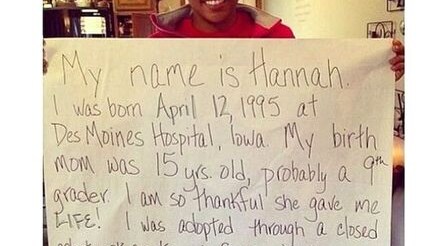 My name is Hannah.
I was born April 12, 1995 at
Des Moines Hospital, Iowa. My birth
mom was 15 yrs. old, probably a 9th
grader. I am so thankful she gave me
LIFE! I was adopted through a closed